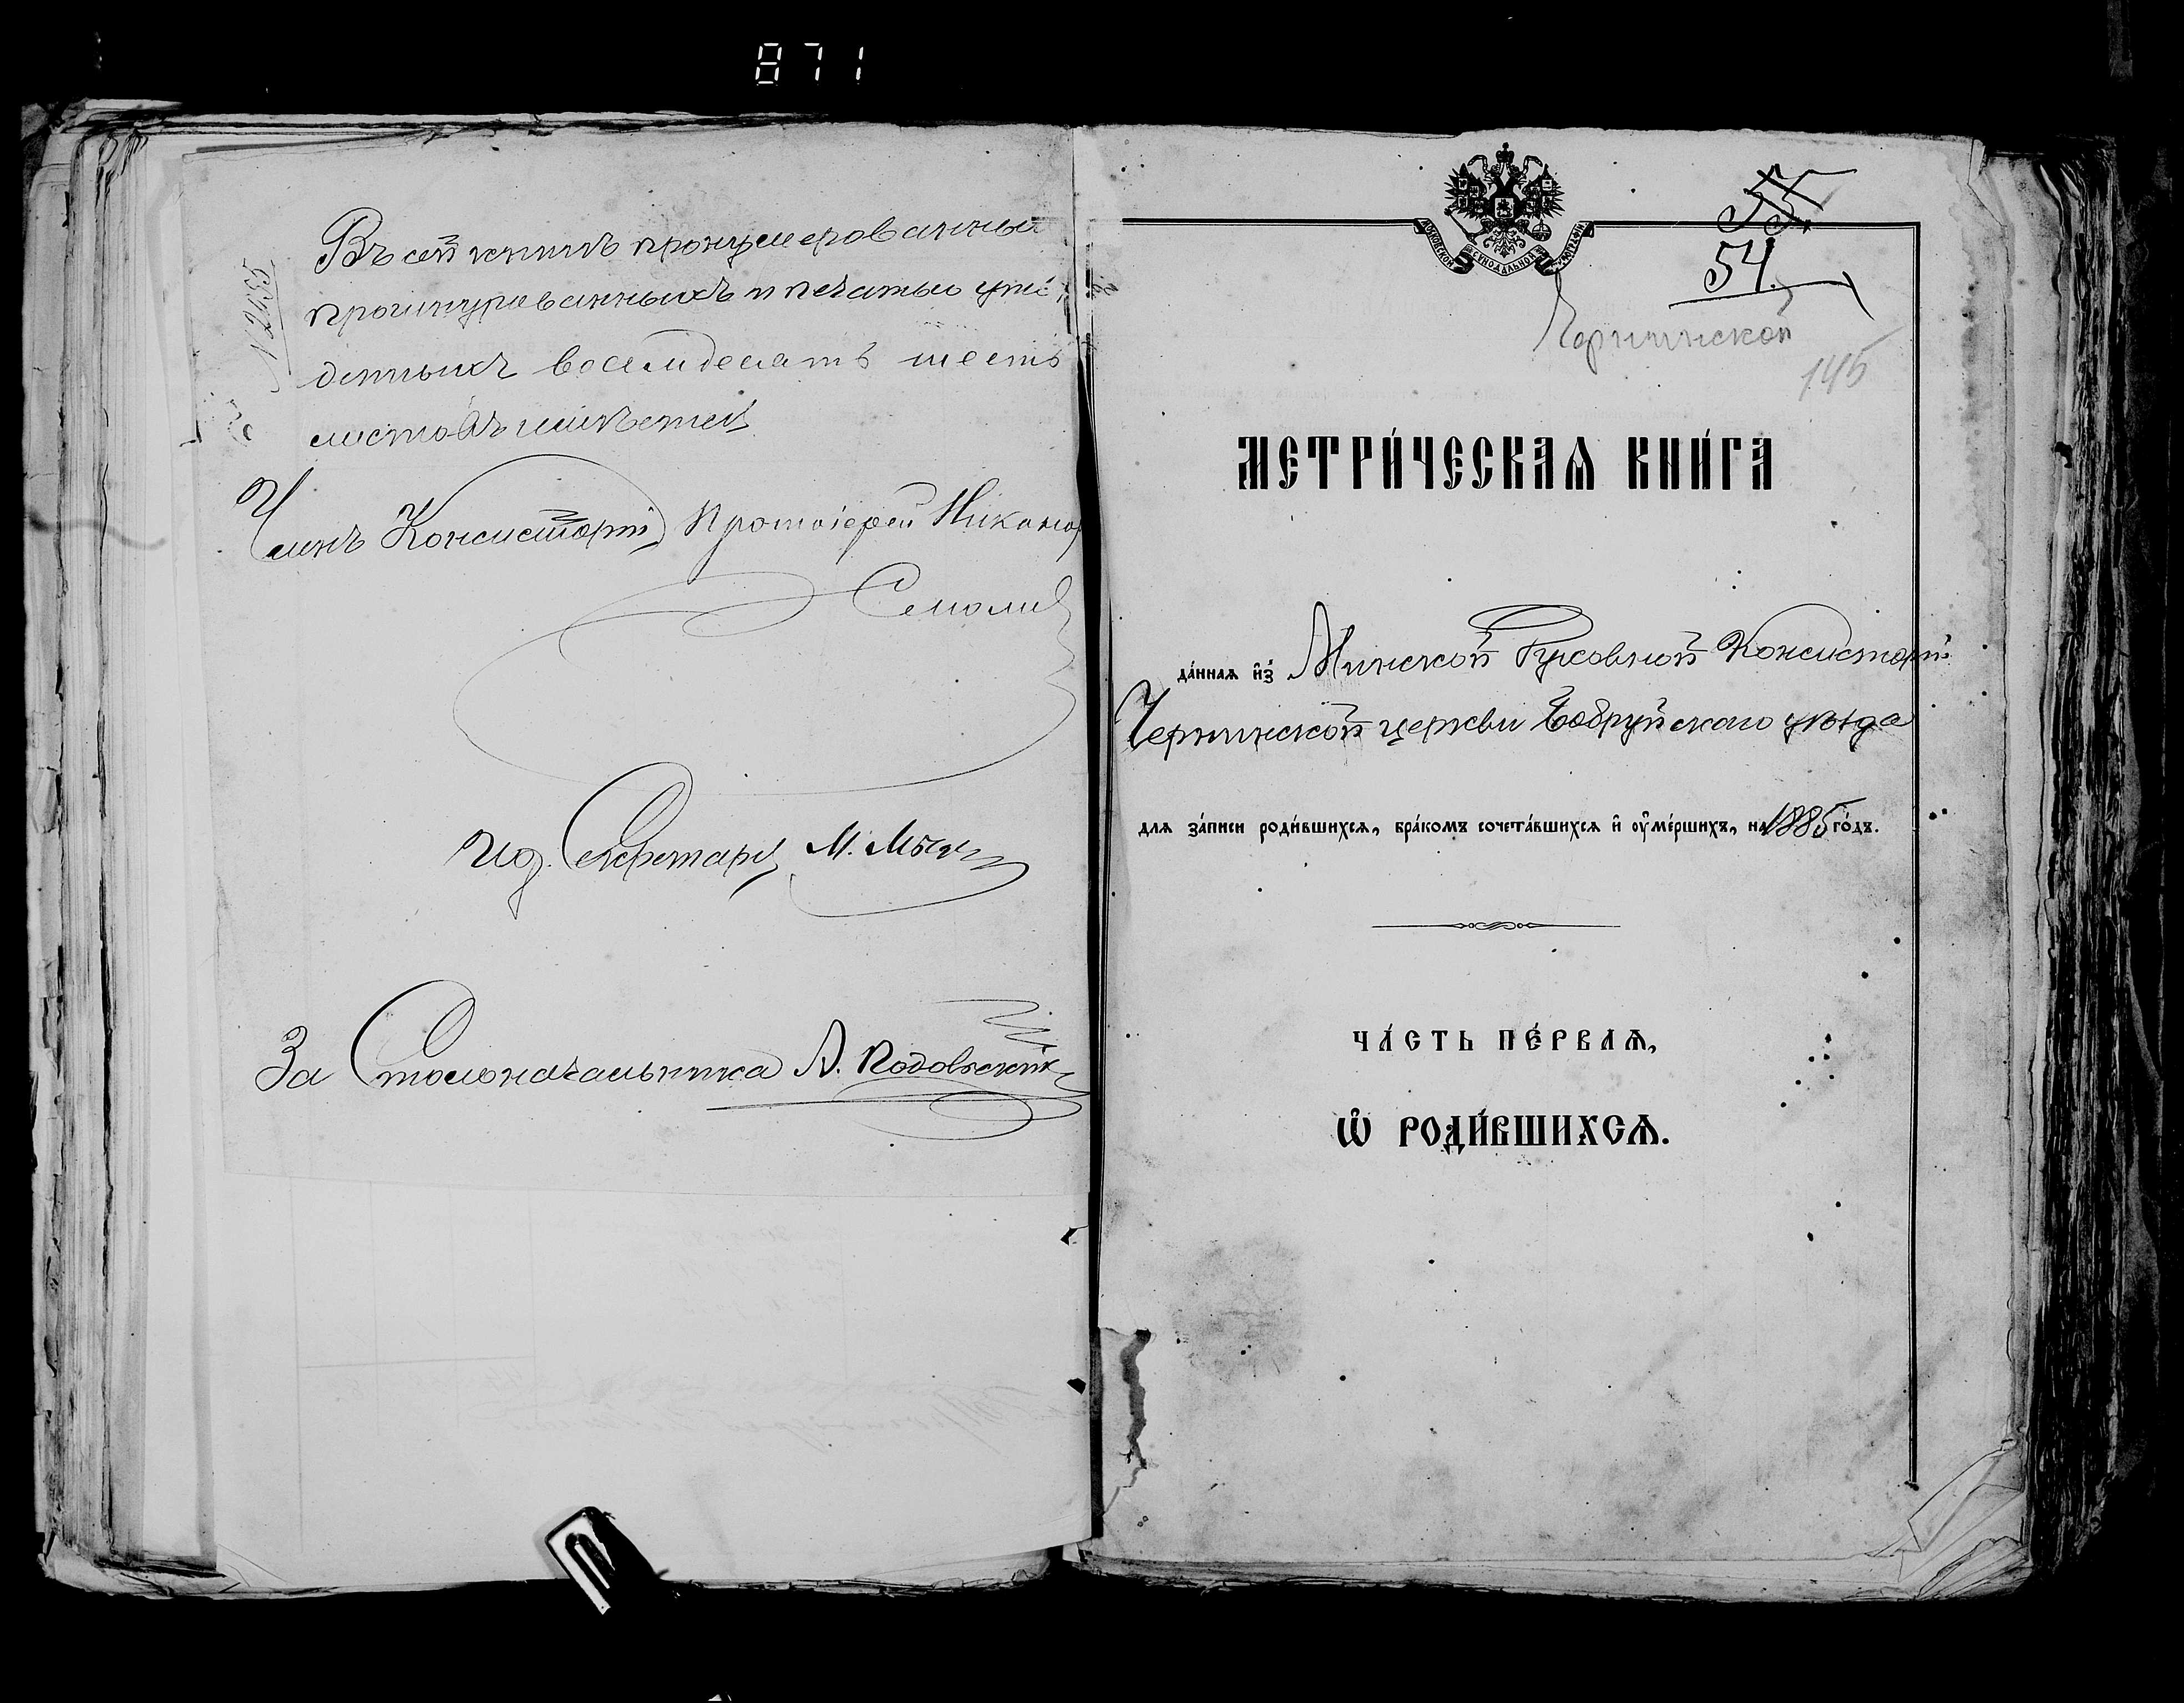 871
№ 2435
Въ сей книгѣ пронумерованныхъ
прошнурованныхъ и печатью утвер
денныхъ восемдесятъ шесть
листовъ имѣется
Членъ Консисторіи Протоіерей Никаноръ
Смолич
И. д. Секретаря М.
За Столоначальника А.
МОСКОВСКОЙ СѴНОДАЛЬНОЙ ТѴПОГРАФІИ
55.
54.
Чернинской
145
МЕТРИ́ЧЕСКАѦ КНИ́ГА
да́ннаѧ и҆з̾ Минской Духовной Консисторіи
Чернинской церкви Бобруйскаго уѣзда
для за́писи роди́вшихсѧ, бра́комъ сочета́вшихсѧ и҆ оу҆ме́ршихъ, на 1885 го́дъ.
ЧА́СТЬ ПЕ́РВАѦ,
Ѡ҆ РОДИ́ВШИХСѦ.